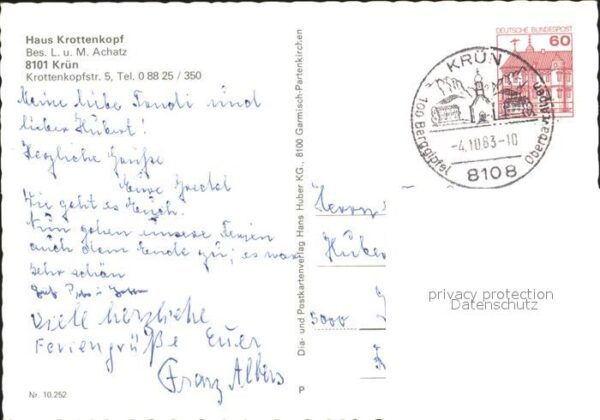 Haus Krottenkopf
Bes. L. u. M. Achatz
8101 Krün
Krottenkopfstr. 5, Tel. 0 88 25 / 350
Meine liebe und
lieber Hubert!
Herzliche Grüße
Eure Gretel
Wie geht es Euch.
Nun gehen unsere Ferien
auch dem Ende zu, es war
sehr schön
Viele herzliche
Feriengrüße Euer
Franz Albers
Nr. 10.252
Dia- und Postkartenverlag Hans Huber KG., 8100 Garmisch-Partenkirchen
P
DEUTSCHE BUNDESPOST
60
KRÜN
100 Berggipfel
Oberbayern
-4.10.83-10
8108
Herrn
Huber
5000
privacy protection
Datenschutz